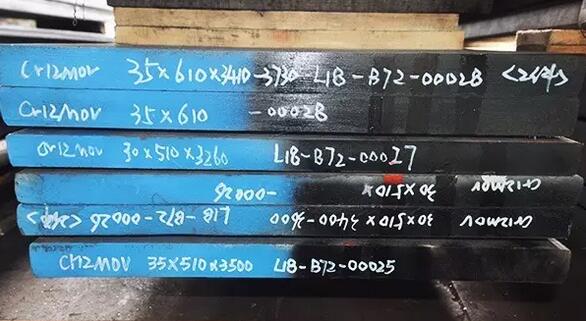 Cr12MOV 35×610×3410-3730-L18-B72-00028 <2件>
Cr12MOV 35×610 -00028
Cr12MOV 30×510×3260 L18-B72-00027
Cr12MOV 30×510× -00026
Cr12MOV 30×510×3400-3600 L18-B72-00026 <2件>
Cr12MOV 35×510×3500 L18-B72-00025